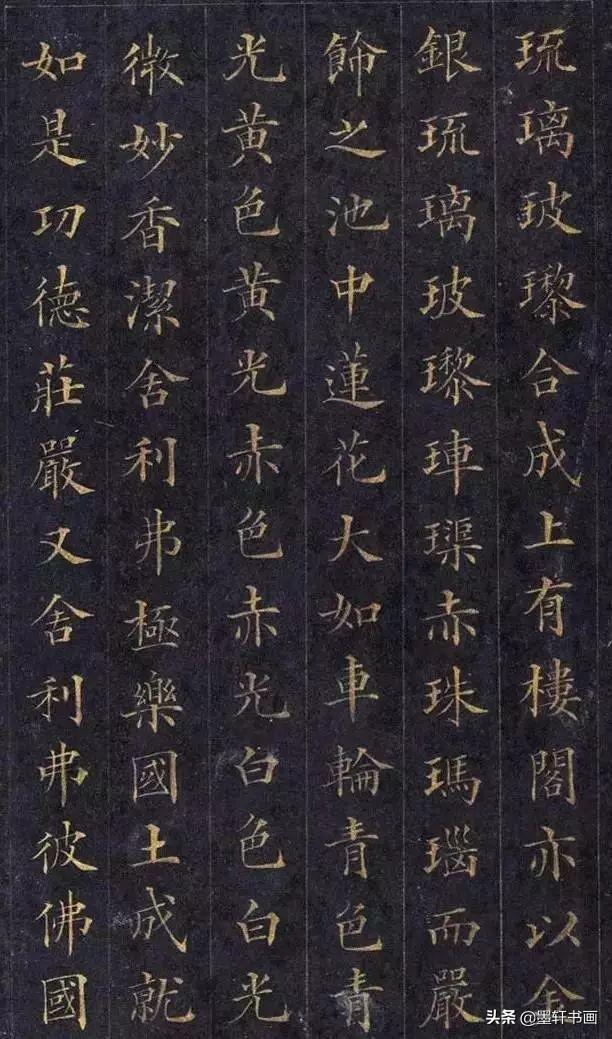 琉璃玻瓈合成上有樓閣亦以金
銀琉璃玻瓈硨璖赤珠瑪瑙而嚴
飾之池中蓮花大如車輪青色青
光黃色黃光赤色赤光白色白光
微妙香潔舍利弗極樂國土成就
如是功德莊嚴又舍利弗彼佛國
头条 @墨轩书画